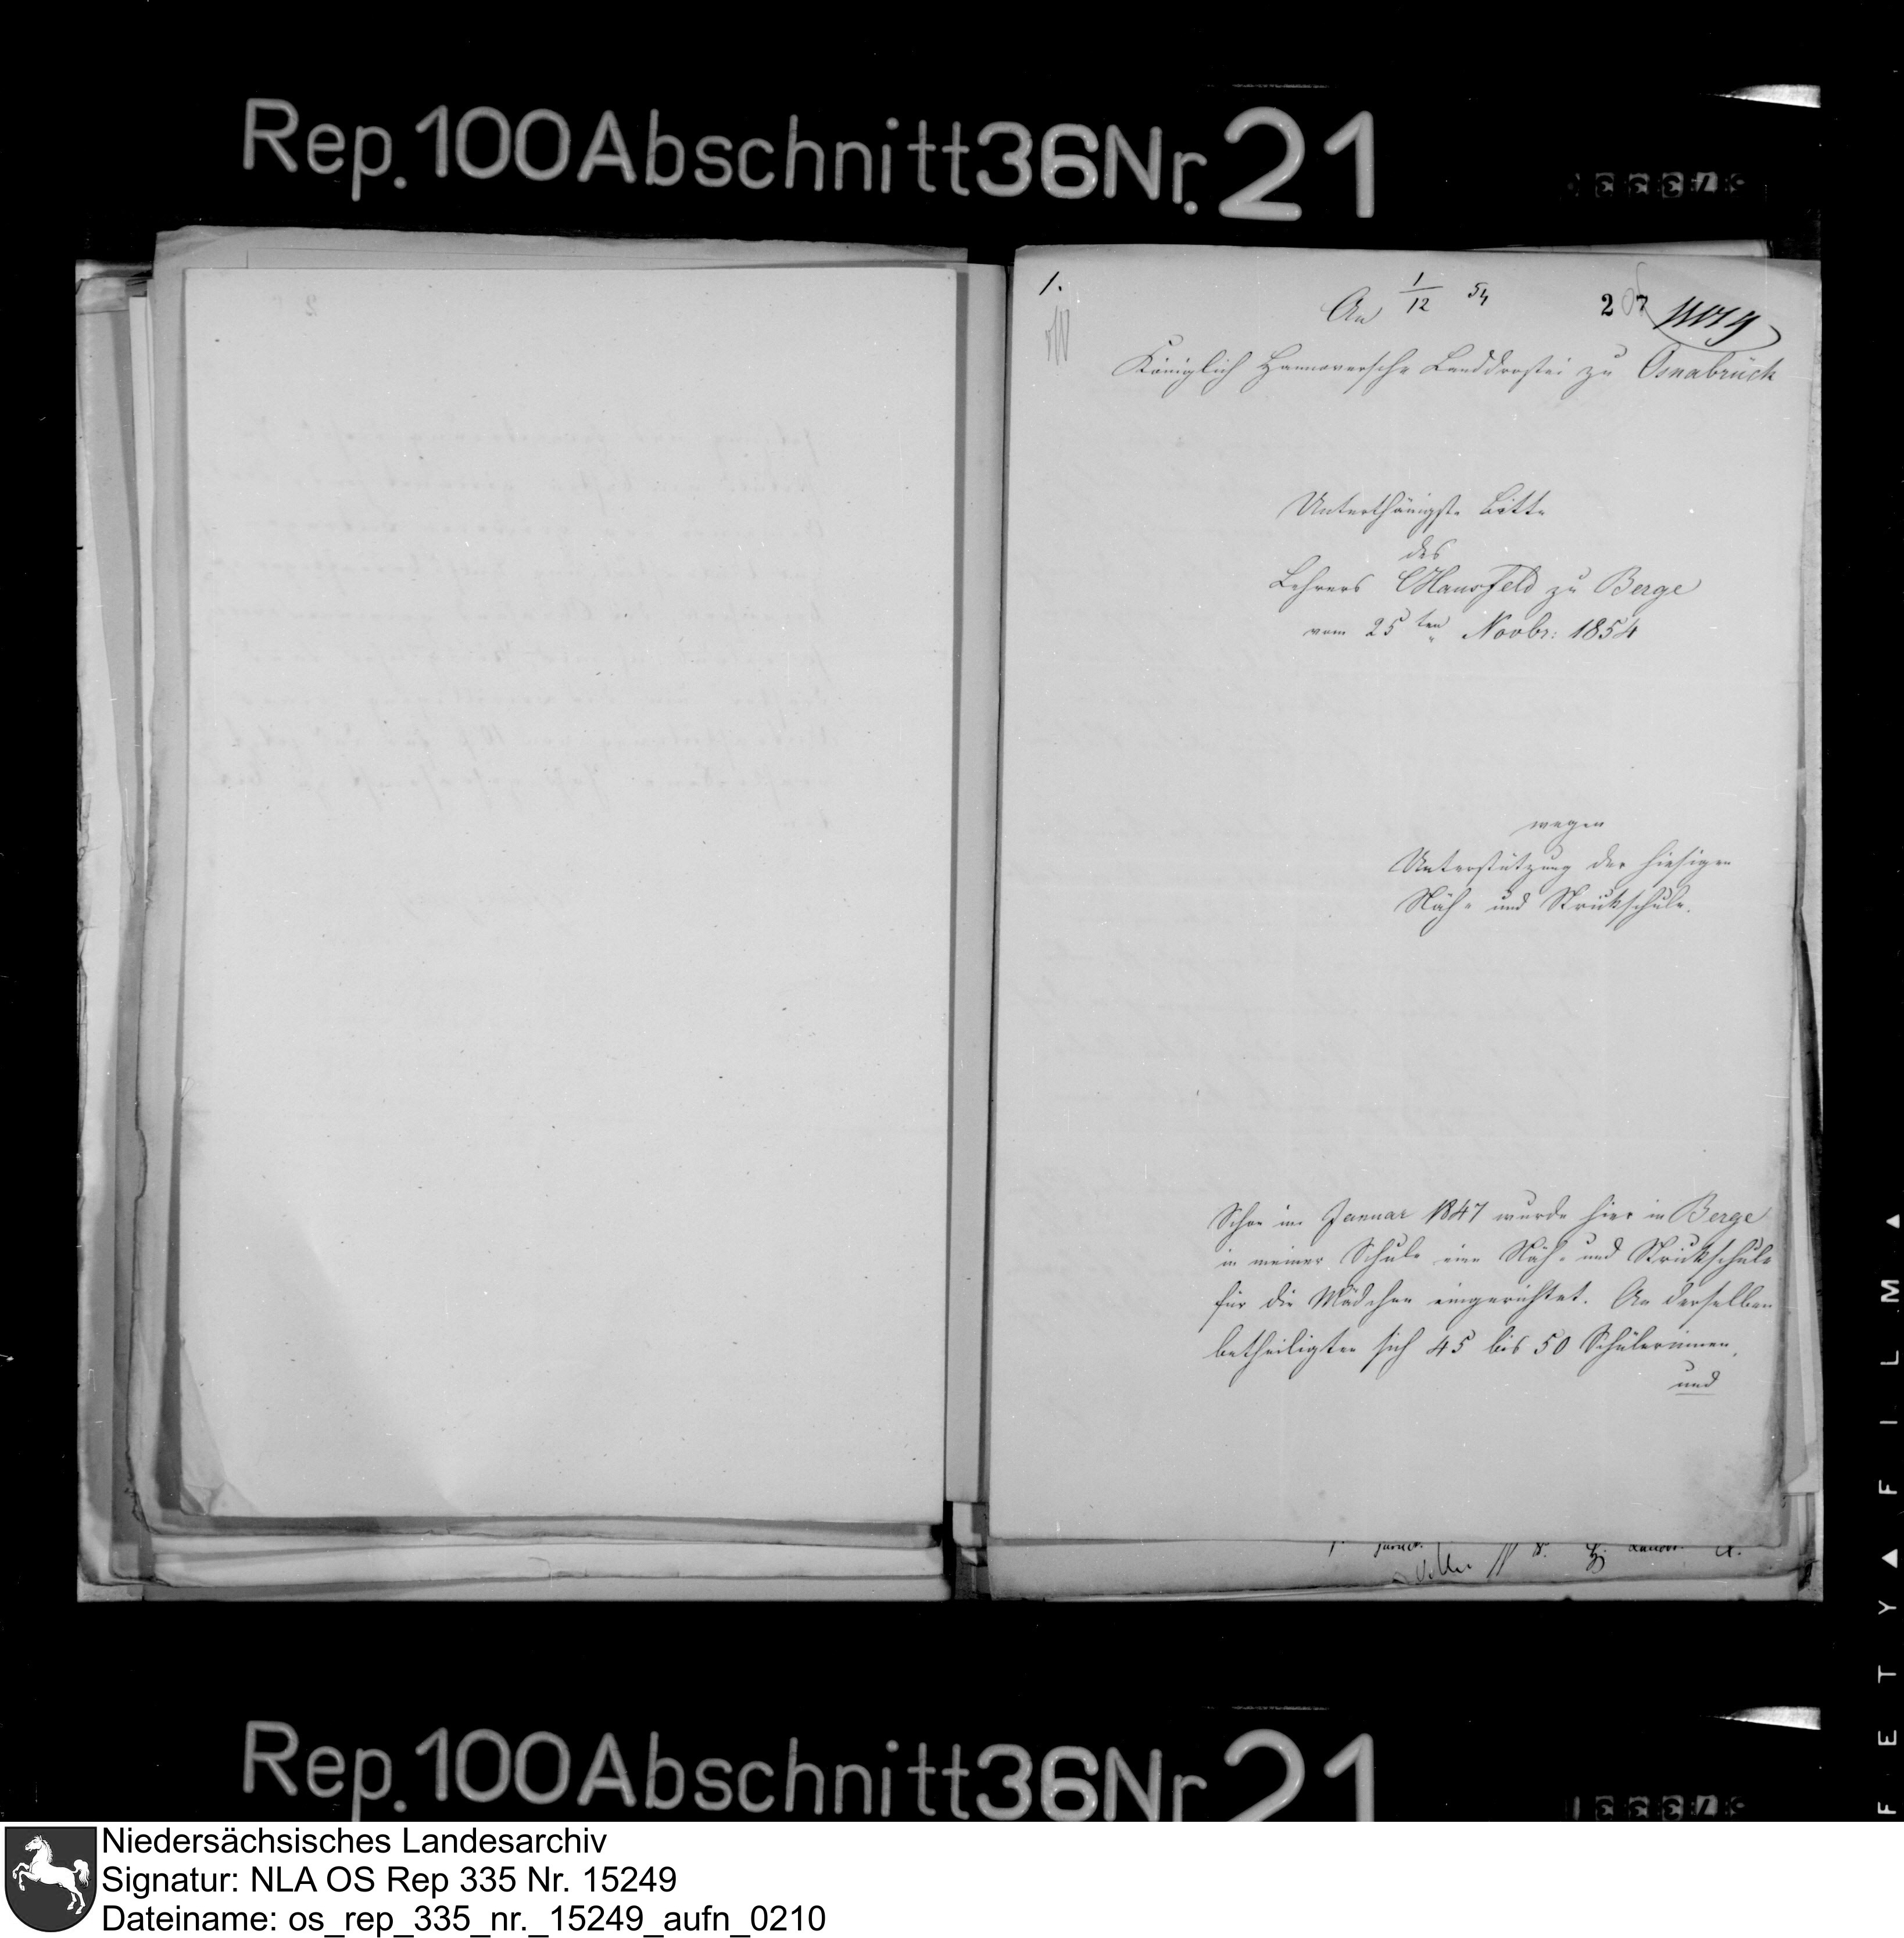 Rep. 100 Abschnitt 36 Nr. 21
1.
An 1/12 54
207
Königlich Hannoversche Landdrostei zu Osnabrück
Unterthänigste Bitte
des
Lehrers CHausfeld zu Berge
vom 25ten Novbr: 1854
wegen
Unterstützung der hiesigen
Näh- und Strickschule.
Schon im Januar 1847 wurde hier in Berge
in meiner Schule eine Näh- und Strickschule
für die Mädchen eingerichtet. An derselben
betheiligten sich 45 bis 50 Schülerinnen,
und
Rep. 100 Abschnitt 36 Nr. 21
SAFETY FILM
Niedersächsisches Landesarchiv
Signatur: NLA OS Rep 335 Nr. 15249
Dateiname: os_rep_335_nr._15249_aufn_0210